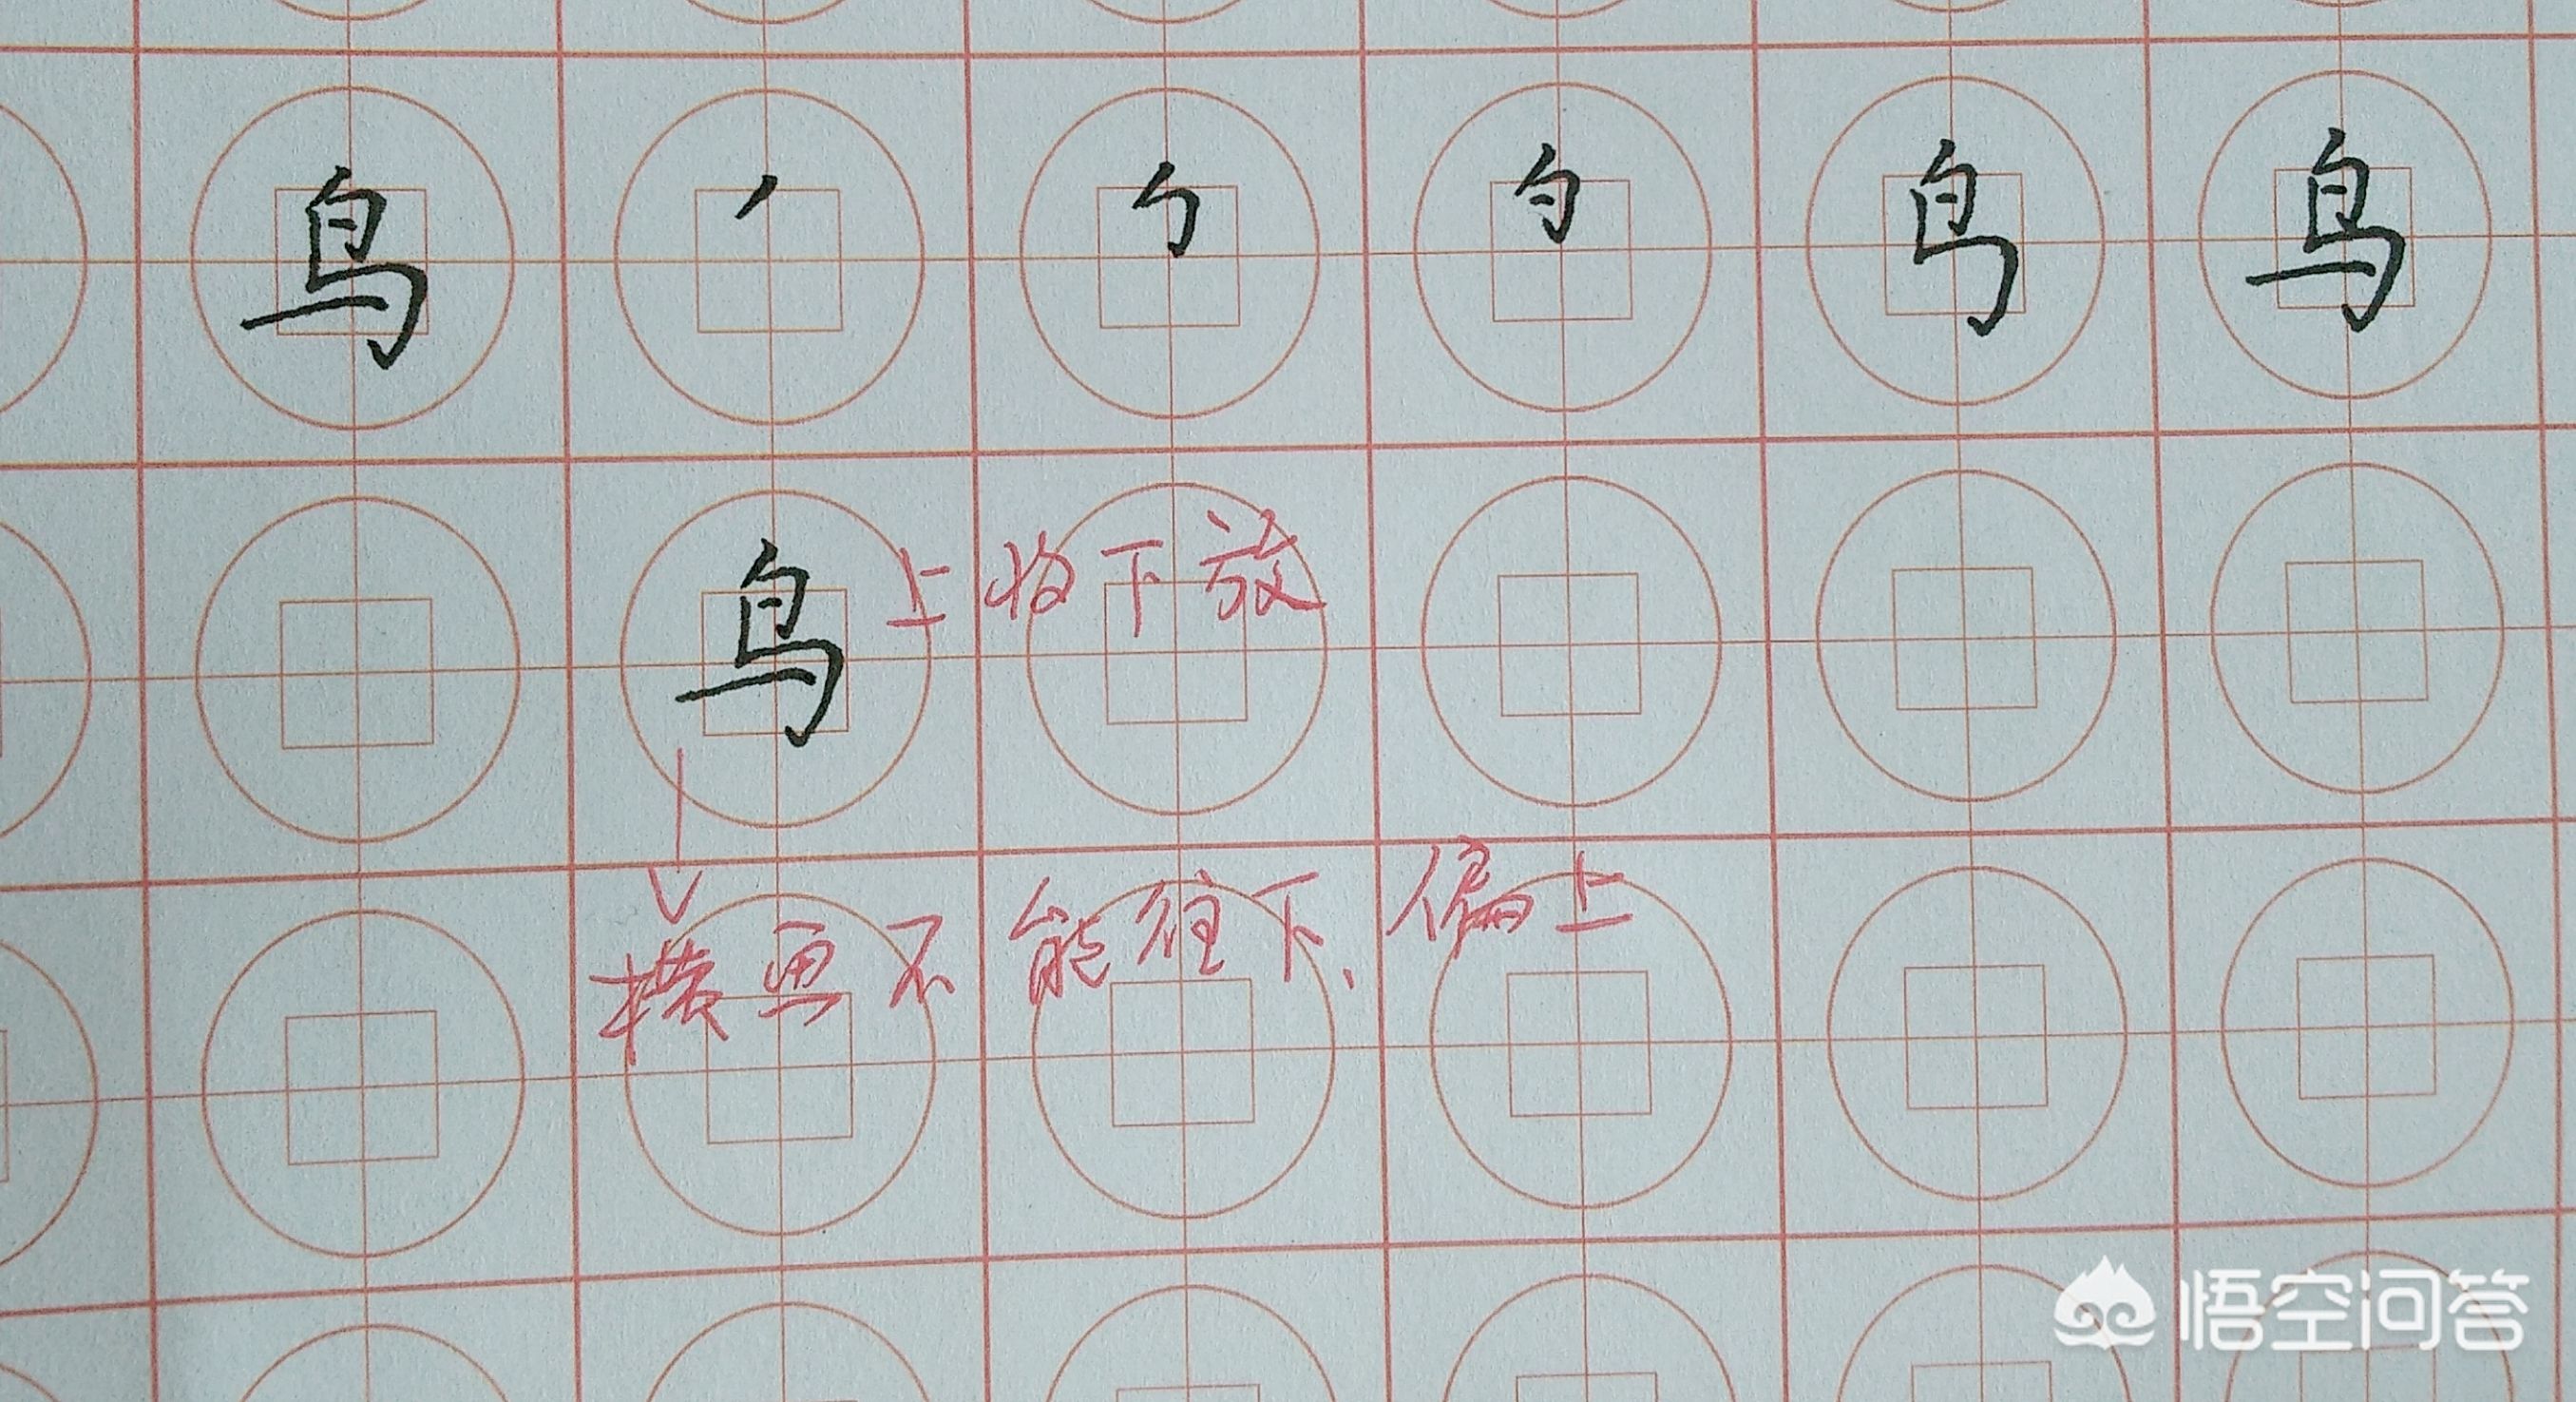 鸟 丿 鸟 鸟
鸟 上收下放
横画不能往下、偏上
悟空问答